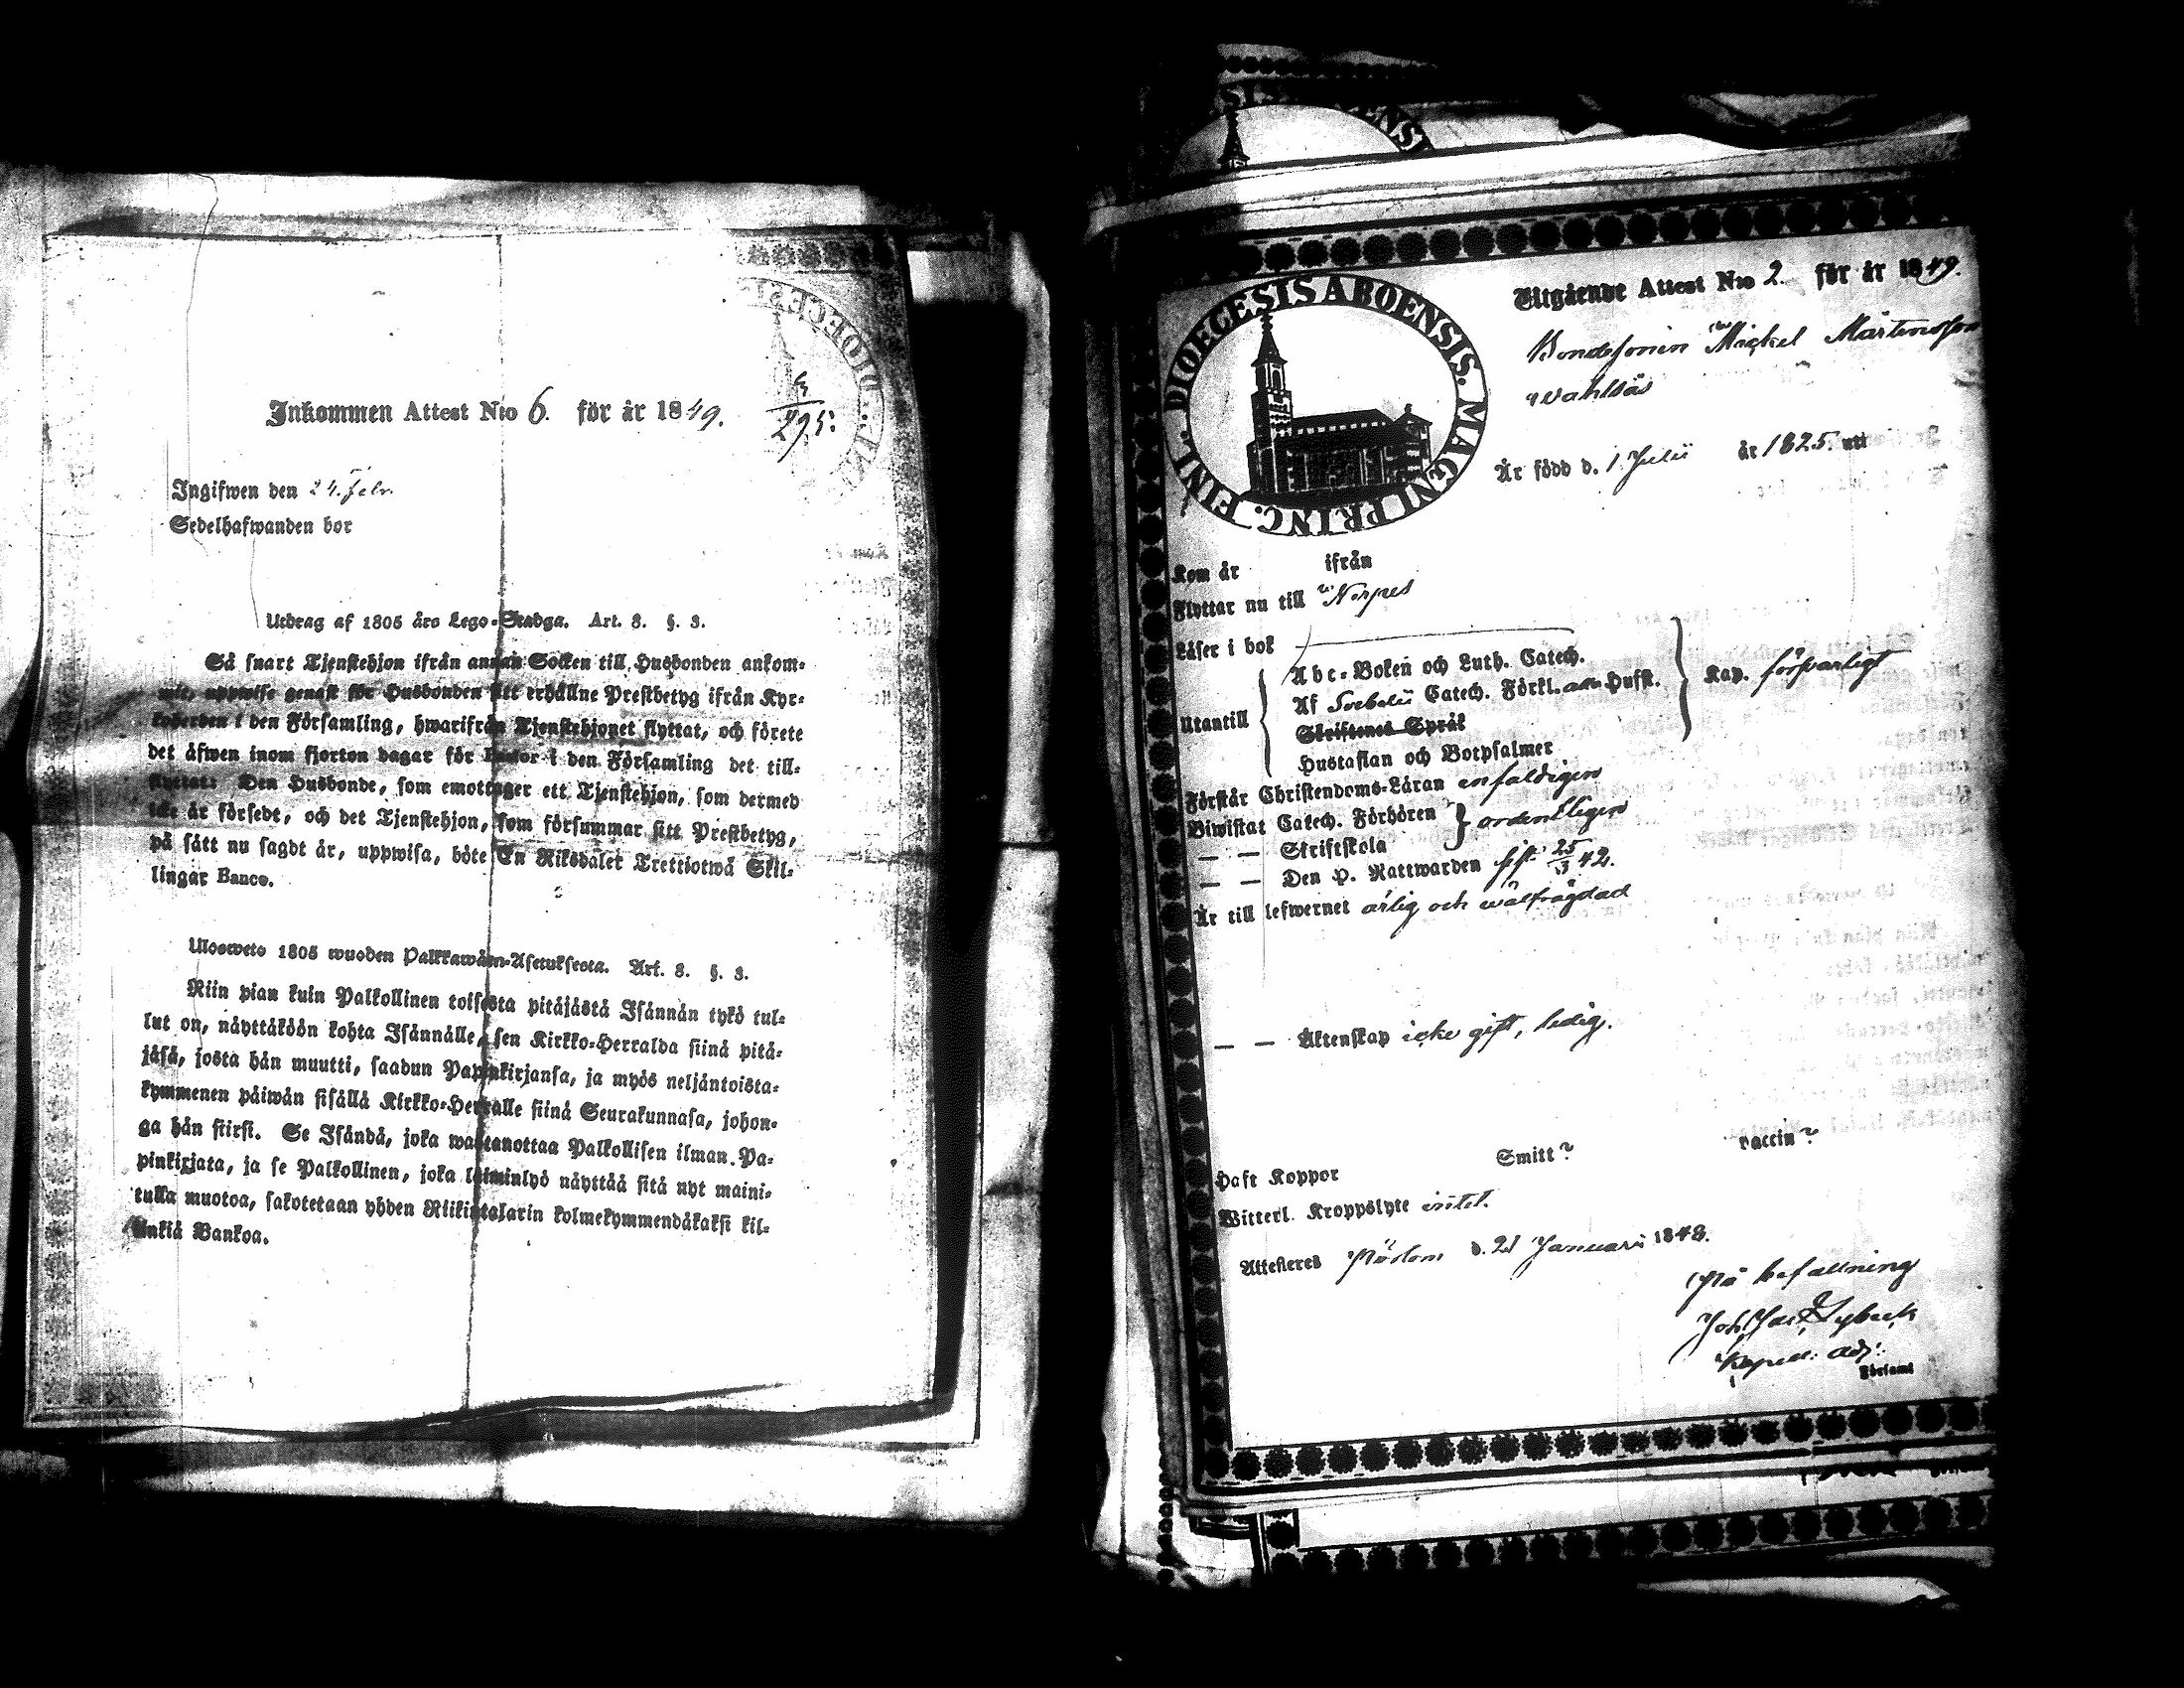 Inkommen Attest N:o 6. för år 1849.
295:
Ingifwen den 24. febr.
Sedelhafwanden bor
Utdrag af 1805 års Lego-Stadga. Art. 8. §. 3.
Så snart Tjenstehjon ifrån annan Socken till Husbonden ankom-
mit, uppwise genast för Husbonden sitt erhållne Prestbetyg ifrån Kyr-
koherden i den Församling, hwarifrån Tjenstehjonet flyttat, och förete
det äfwen inom fjorton dagar för Pastor i den Församling det till-
flyttat: Den Husbonde, som emottager ett Tjenstehjon, som dermed
icke är försedt, och det Tjenstehjon, som försummar sitt Prestbetyg,
på sätt nu sagdt är, uppwisa, böte En Riksdaler Trettiotwå Skil-
lingar Banco.
Ulosweto 1805 wuoden Palkkawäen-Asetuksesta. Art. 8. §. 3.
Niin pian kuin Palkollinen toisesta pitäjästä Isännän tykö tul-
lut on, näyttäköön kohta Isännälle, sen Kirkko-Herralda siinä pitä-
jäsä, josta hän muutti, saadun Papinkirjansa, ja myös neljäntoista-
kymmenen päiwän sisällä Kirkko-Herralle siinä Seurakunnasa, johon-
ga hän siirsi. Se Isändä, joka wastanottaa Palkollisen ilman Pa-
pinkirjata, ja se Palkollinen, joka laiminlyö näyttää sitä nyt maini-
tulla muotoa, sakotetaan yhden Riikintalarin kolmekymmendäkaksi kil-
linkiä Bankoa.
DIOECESIS ABOENSIS. MAGNI PRINC. FINL.
Utgående Attest N:o 2. för år 1849.
Bondesonen Mickel Mårtensson
Wahlsås
Är född d. 1 Julii år 1825. uti
Kom år ifrån
Flyttar nu till Nerpes
Läser i bok
Utantill
Abc-Boken och Luth. Catech.
Af Svebelii Catech. Förkl. Husft.
Skriftenes Språk
Hustaflan och Botpsalmer
Kap. försvarligt
Förstår Christendoms-Läran enfaldigen
Biwistat Catech. Förhören
— — Skriftskola
ordentligen
— — Den H. Nattwarden sist 25/3 42.
Är till lefwernet ärlig och wälfrägdad
— — Äktenskap icke gift, ledig.
Haft Koppor Smitt? vaccin?
Witterl. Kroppslyte intet.
Attesteres d. 21 Januari 1848.
På befallning
Joh. Jac. Lybeck
Kapell. adj.
Församl